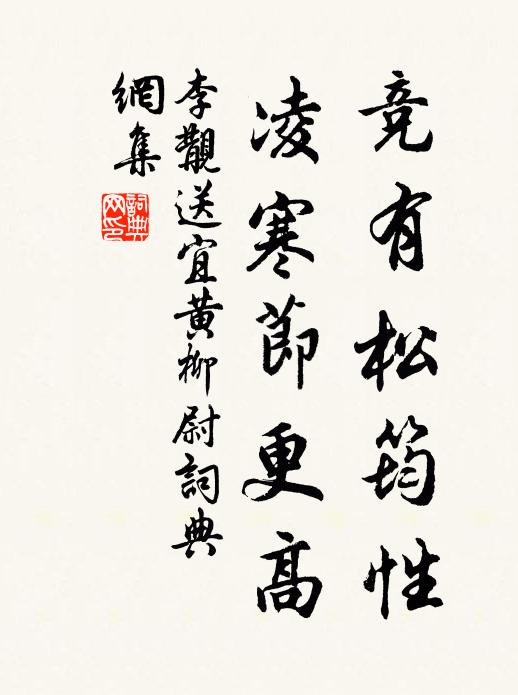 竞有松筠性
凌寒節更高
李覯送宜黄柳尉詞典
網集
詞典
网印